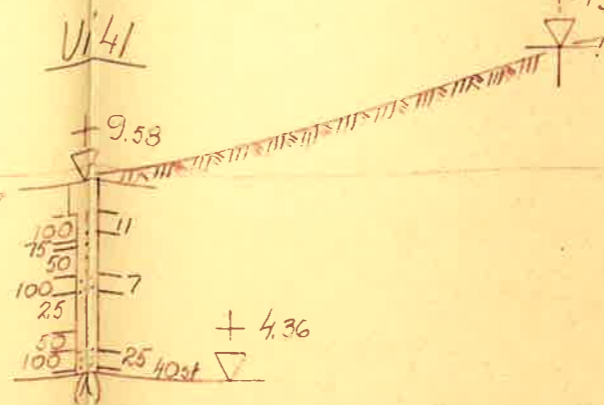 Vi 41
+ 9.58
100
75
50
100
25
50
100
11
7
25
40 st
+ 4.36